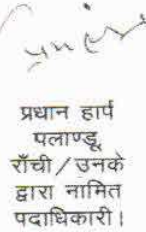 प्रधान हार्प
पलाण्डू,
राँची / उनके
द्वारा नामित
पदाधिकारी।